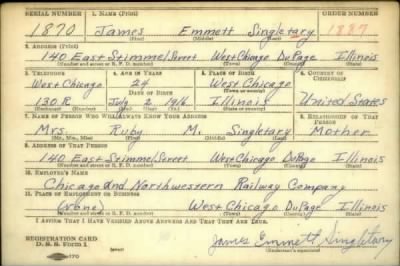 SERIAL NUMBER 1. NAME (Print) ORDER NUMBER
1870 James Emmett Singletary 1889
(First) (Middle) (Last)
2. ADDRESS (Print)
140 East Stimmel Street West Chicago DuPage Illinois
(Number and street or R. F. D. number) (Town) (County) (State)
3. TELEPHONE 4. AGE IN YEARS 5. PLACE OF BIRTH 6. COUNTRY OF CITIZENSHIP
West Chicago 24 West Chicago
DATE OF BIRTH (Town or county)
130R July 2 1916 Illinois United States
(Exchange) (Number) (Mo.) (Day) (Yr.) (State or country)
7. NAME OF PERSON WHO WILL ALWAYS KNOW YOUR ADDRESS 8. RELATIONSHIP OF THAT PERSON
Mrs. Ruby M. Singletary Mother
(Mr., Mrs., Miss) (First) (Middle) (Last)
9. ADDRESS OF THAT PERSON
140 East Stimmel Street West Chicago DuPage Illinois
(Number and street or R. F. D. number) (Town) (County) (State)
10. EMPLOYER'S NAME
Chicago and Northwestern Railway Company
11. PLACE OF EMPLOYMENT OR BUSINESS
(None) West Chicago DuPage Illinois
(Number and street or R. F. D. number) (Town) (County) (State)
I AFFIRM THAT I HAVE VERIFIED ABOVE ANSWERS AND THAT THEY ARE TRUE.
REGISTRATION CARD
D. S. S. Form 1 James Emmett Singletary
(Registrant's signature)